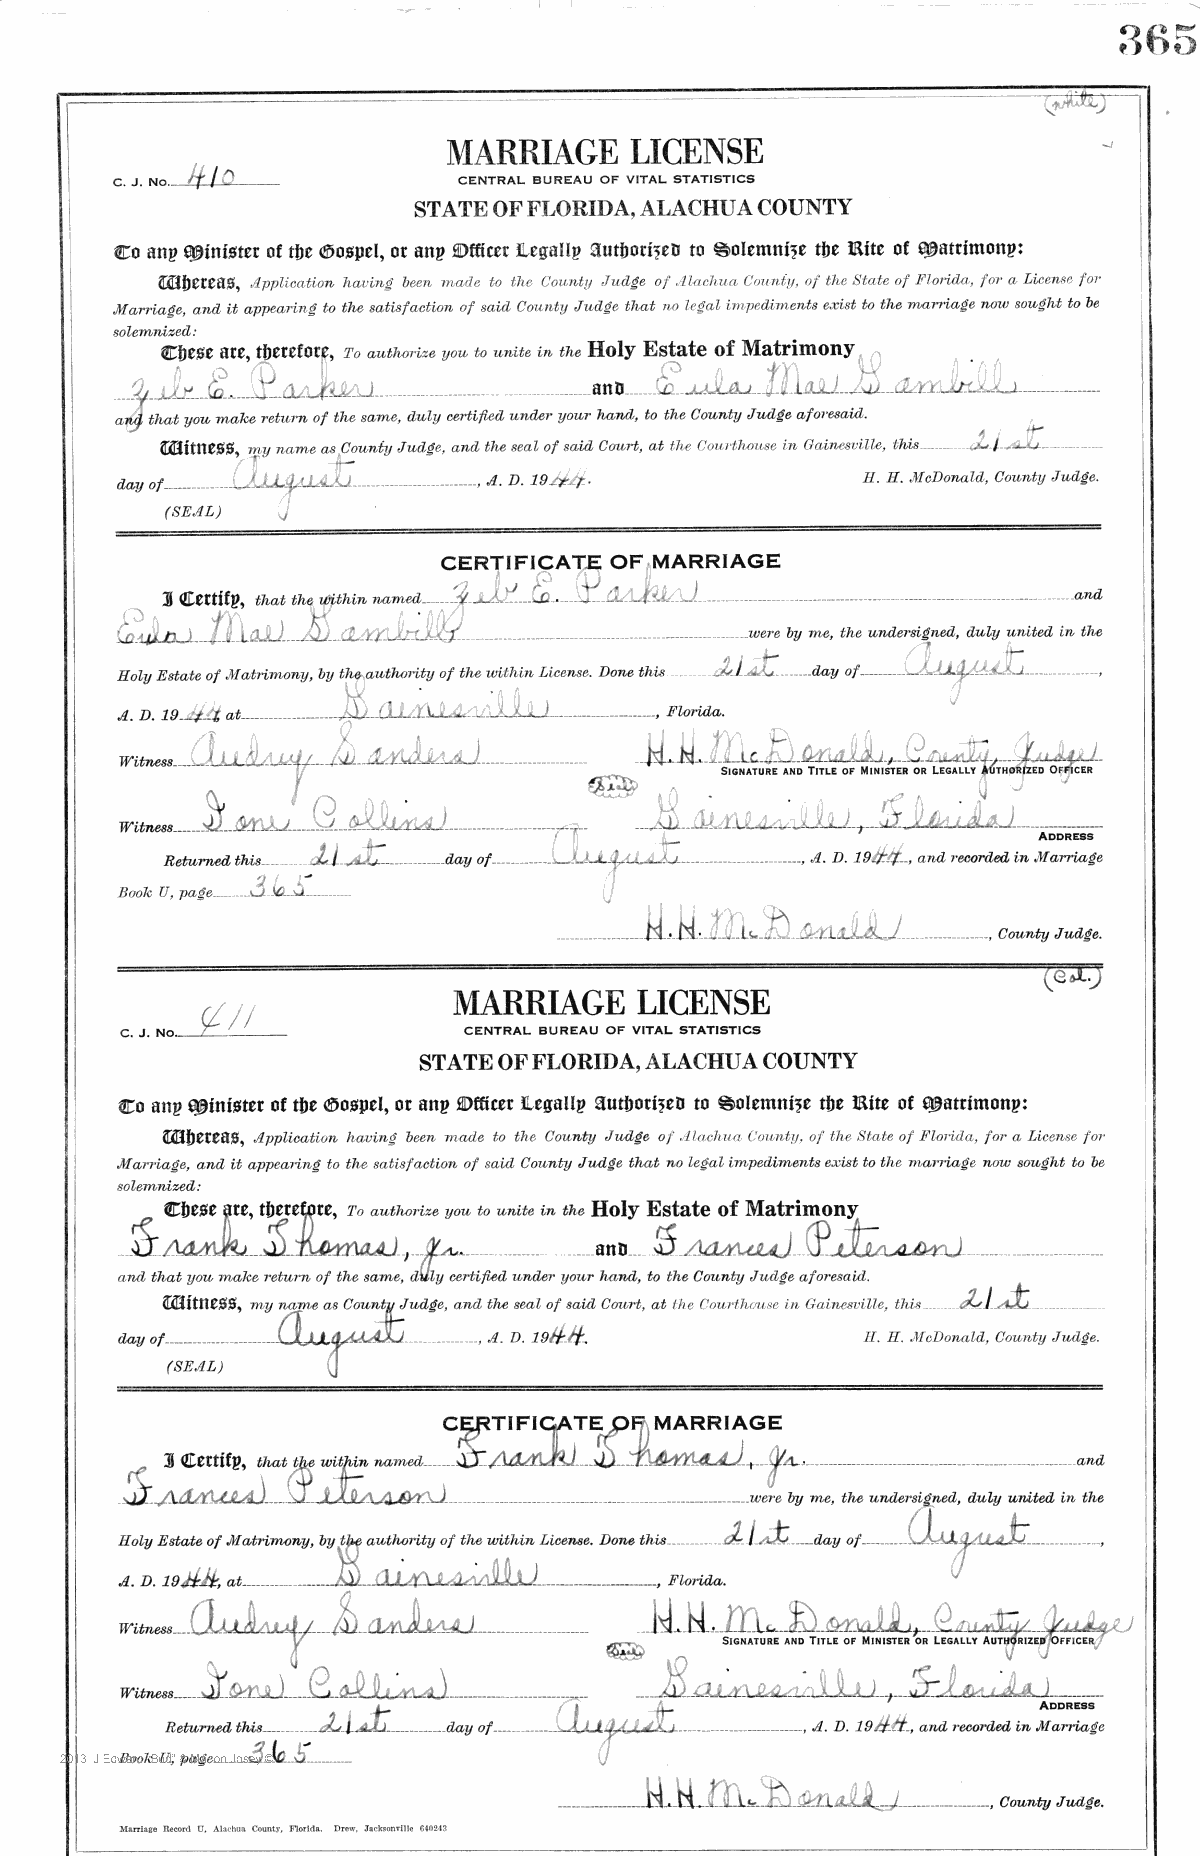 365
(white)
MARRIAGE LICENSE
C. J. No. 410
CENTRAL BUREAU OF VITAL STATISTICS
STATE OF FLORIDA, ALACHUA COUNTY
To any Minister of the Gospel, or any Officer Legally Authorized to Solemnize the Rite of Matrimony:
Whereas, Application having been made to the County Judge of Alachua County, of the State of Florida, for a License for
Marriage, and it appearing to the satisfaction of said County Judge that no legal impediments exist to the marriage now sought to be
solemnized:
These are, therefore, To authorize you to unite in the Holy Estate of Matrimony
Zeb E. Parker and Eula Mae Gambill
and that you make return of the same, duly certified under your hand, to the County Judge aforesaid.
Witness, my name as County Judge, and the seal of said Court, at the Courthouse in Gainesville, this 21st
day of August, A. D. 1944. H. H. McDonald, County Judge.
(SEAL)
CERTIFICATE OF MARRIAGE
I Certify, that the within named Zeb E. Parker and
Eula Mae Gambill were by me, the undersigned, duly united in the
Holy Estate of Matrimony, by the authority of the within License. Done this 21st day of August,
A. D. 1944, at Gainesville, Florida.
Witness Audrey Sanders H. H. McDonald, County Judge
SIGNATURE AND TITLE OF MINISTER OR LEGALLY AUTHORIZED OFFICER
(Seal)
Witness Ione Collins Gainesville, Florida
ADDRESS
Returned this 21st day of August, A. D. 1944, and recorded in Marriage
Book U, page 365
H. H. McDonald, County Judge.
(Col.)
MARRIAGE LICENSE
C. J. No. 411
CENTRAL BUREAU OF VITAL STATISTICS
STATE OF FLORIDA, ALACHUA COUNTY
To any Minister of the Gospel, or any Officer Legally Authorized to Solemnize the Rite of Matrimony:
Whereas, Application having been made to the County Judge of Alachua County, of the State of Florida, for a License for
Marriage, and it appearing to the satisfaction of said County Judge that no legal impediments exist to the marriage now sought to be
solemnized:
These are, therefore, To authorize you to unite in the Holy Estate of Matrimony
Frank Thomas, Jr. and Frances Peterson
and that you make return of the same, duly certified under your hand, to the County Judge aforesaid.
Witness, my name as County Judge, and the seal of said Court, at the Courthouse in Gainesville, this 21st
day of August, A. D. 1944. H. H. McDonald, County Judge.
(SEAL)
CERTIFICATE OF MARRIAGE
I Certify, that the within named Frank Thomas, Jr. and
Frances Peterson were by me, the undersigned, duly united in the
Holy Estate of Matrimony, by the authority of the within License. Done this 21st day of August,
A. D. 1944, at Gainesville, Florida.
Witness Audrey Sanders H. H. McDonald, County Judge
SIGNATURE AND TITLE OF MINISTER OR LEGALLY AUTHORIZED OFFICER
(Seal)
Witness Ione Collins Gainesville, Florida
ADDRESS
Returned this 21st day of August, A. D. 1944, and recorded in Marriage
Book U, page 365
H. H. McDonald, County Judge.
Marriage Record U, Alachua County, Florida. Drew, Jacksonville 640243